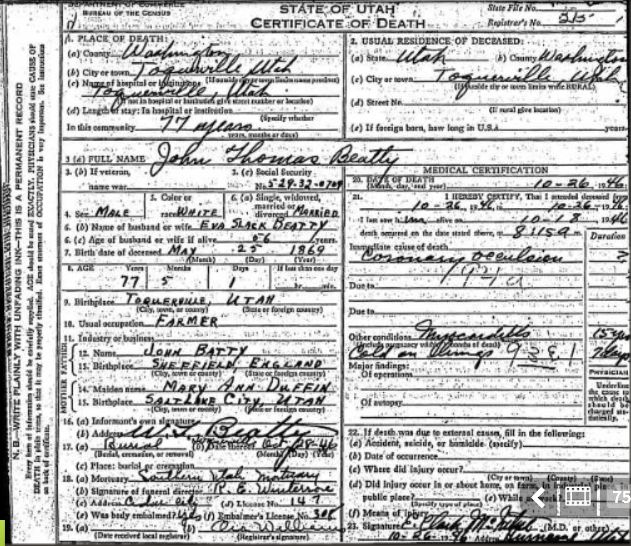 DEPARTMENT OF COMMERCE
BUREAU OF THE CENSUS
STATE OF UTAH
CERTIFICATE OF DEATH
State File No.
Registrar's No. 315
1. PLACE OF DEATH:
(a) County Washington
(b) City or town Toquerville Utah
(c) Name of hospital or institution:
Toquerville, Utah
(If not in hospital or institution give street number or location)
(d) Length of stay: In hospital or institution
(Specify whether
In this community 77 years
years, months or days)
2. USUAL RESIDENCE OF DECEASED:
(a) State Utah (b) County Washington
(c) City or town Toquerville Utah
(If outside city or town limits write RURAL)
(d) Street No.
(If rural give location)
(e) If foreign born, how long in U.S.A. years
3 (a) FULL NAME John Thomas Beatty
3. (b) If veteran, name war
3. (c) Social Security No. 529-32-0709
4. Sex MALE
5. Color or race WHITE
6. (a) Single, widowed, married or divorced MARRIED
6. (b) Name of husband or wife EVA SLACK BEATTY
6. (c) Age of husband or wife if alive 66 years
7. Birth date of deceased MAY 25 1869
(Month) (Day) (Year)
8. AGE Years Months Days If less than one day
77 5 1 hr. min.
9. Birthplace TOQUERVILLE, UTAH
(City, town, or county) (State or foreign country)
10. Usual occupation FARMER
11. Industry or business
FATHER
12. Name JOHN BATTY
13. Birthplace SHEFFIELD ENGLAND
(City, town or county) (State or foreign country)
MOTHER
14. Maiden name MARY ANN DUFFIN
15. Birthplace SALT LAKE CITY, UTAH
(City, town or county) (State or foreign country)
16. (a) Informant's own signature
(b) Address
17. (a) Burial (b) Date thereof Oct 28-46
(Burial, cremation, or removal) (Month) (Day) (Year)
(c) Place: burial or cremation
18. (a) Mortuary Southern Utah Mortuary
(b) Signature of funeral director
(c) Address Cedar City (d) License No. 147
(e) Was body embalmed? Yes (f) Embalmer's License No. 308
19. (a) (b) Ora Williams
(Date received local registrar) (Registrar's signature)
MEDICAL CERTIFICATION
20. DATE OF DEATH
(Month, day, and year) 10-26, 1946
21. I HEREBY CERTIFY, That I attended deceased from
10-26, 1946, to 10-26, 1946
I last saw him alive on 10-18, 1946
death occurred on the date stated above, at 8:15 a m. Duration
Immediate cause of death
Coronary occlusion
Due to
Due to
Other conditions Myocarditis
(Include pregnancy within 3 months of death)
Cold on lungs
Major findings:
Of operations
Of autopsy
PHYSICIAN
Underline the cause to which death should be charged statistically.
22. If death was due to external causes, fill in the following:
(a) Accident, suicide, or homicide (specify)
(b) Date of occurrence
(c) Where did injury occur?
(City or town) (County) (State)
(d) Did injury occur in or about home, on farm, in
public place? (e) While
(Specify type of place)
(f) Means of injury
23. Signature (M.D. or other)
10-26-1946 Address Hurricane Utah
N. B.—WRITE PLAINLY WITH UNFADING INK—THIS IS A PERMANENT RECORD
75